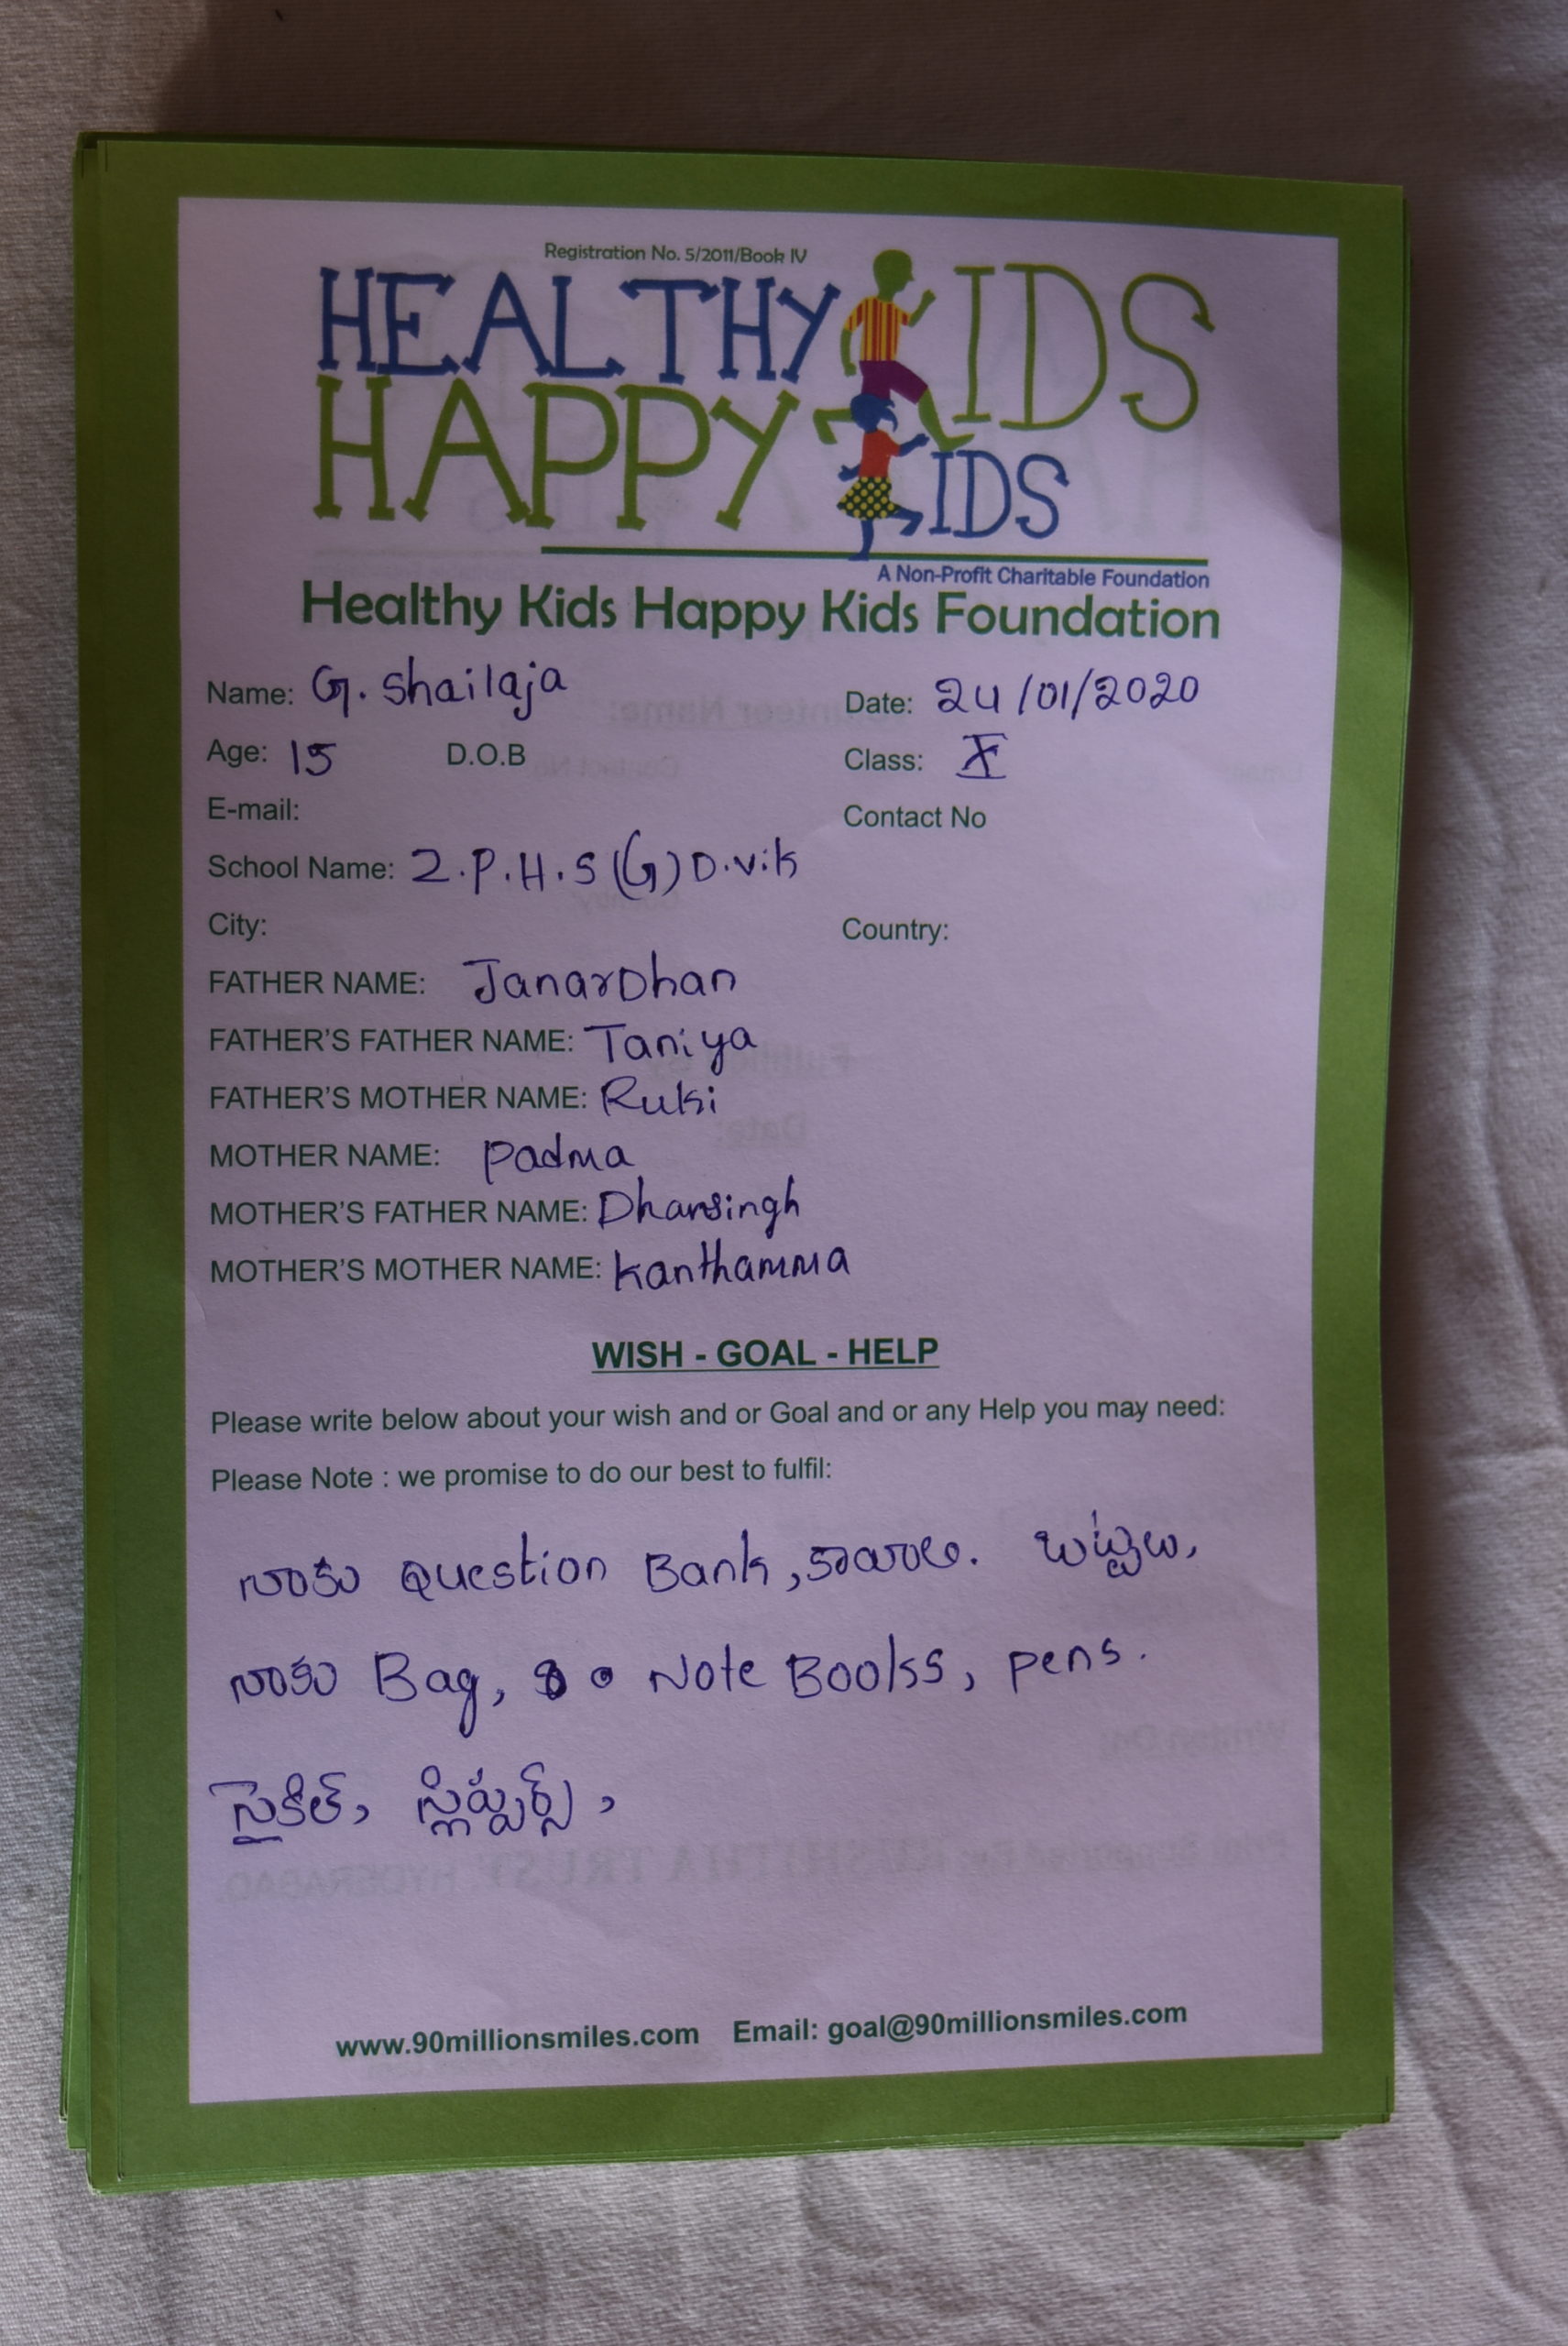 Registration No. 5/2011/Book IV
HEALTHY KIDS
HAPPY KIDS
A Non-Profit Charitable Foundation
Healthy Kids Happy Kids Foundation
Name: G. Shailaja Date: 24/01/2020
Age: 15 D.O.B Class: X
E-mail: Contact No
School Name: Z.P.H.S (G) D.V.K
City: Country:
FATHER NAME: JanarDhan
FATHER'S FATHER NAME: Taniya
FATHER'S MOTHER NAME: Ruki
MOTHER NAME: Padma
MOTHER'S FATHER NAME: Dhansingh
MOTHER'S MOTHER NAME: Kanthamma
WISH - GOAL - HELP
Please write below about your wish and or Goal and or any Help you may need:
Please Note : we promise to do our best to fulfil:
నాకు Question Bank, కావాలి. బట్టలు,
నాకు Bag, Note Books, pens.
సైకిల్, స్లిప్పర్స్,
www.90millionsmiles.com Email: goal@90millionsmiles.com